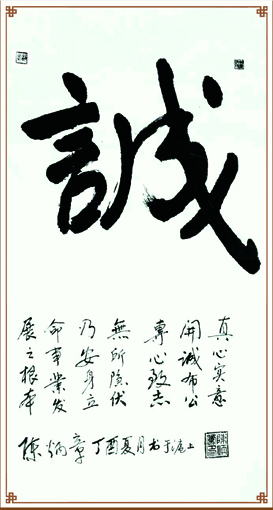 誠
真心实意
開诚布公
專心致志
無所隐伏
乃安身立
命事業发
展之根本
陈炳章丁酉夏月书于滬上